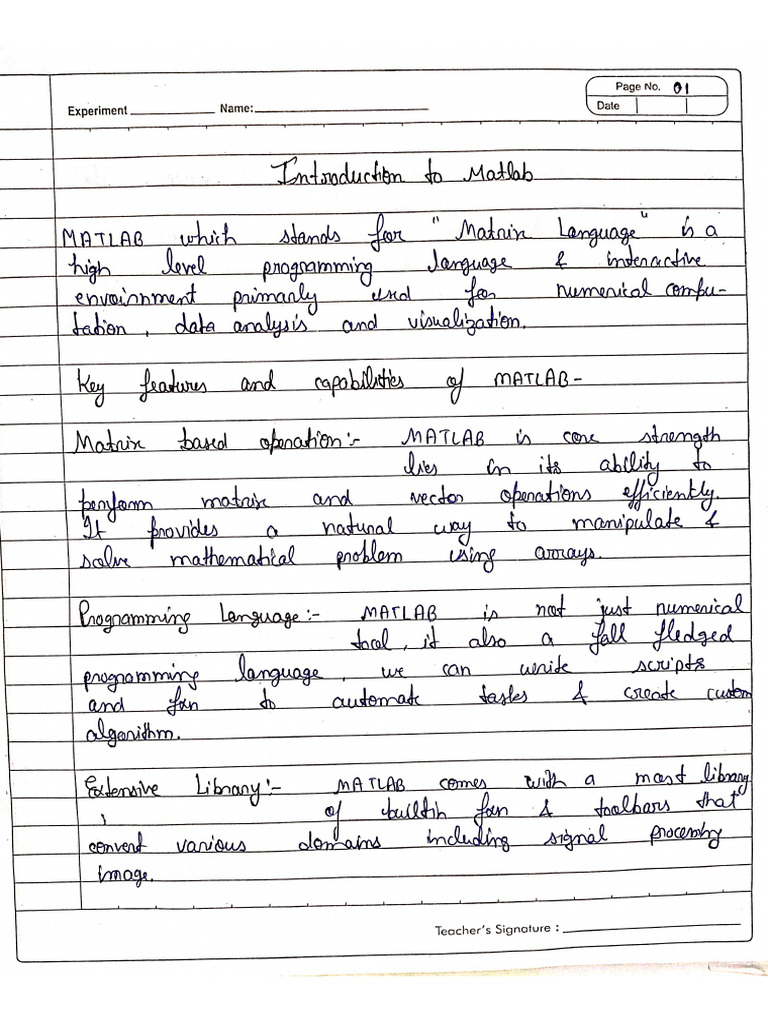 Page No. 01
Experiment Name:
Date
Introduction to Matlab
MATLAB which stands for "Matrix Language" is a
high level programming language & interactive
envoirnment primarly used for numerical compu-
tation, data analysis and visualization.
Key features and capabilities of MATLAB-
Matrix based operation:- MATLAB is core strength
lies in its ability to
perform matrix and vector operations efficiently.
It provides a natural way to manipulate &
solve mathematical problem using arrays.
Programming Language:- MATLAB is not just numerical
tool, it also a fall fledged
programming language, we can write scripts
and fxn to automate tasks & create custom
algorithm.
Extensive Library:- MATLAB comes with a mast library
of builtin fxn & toolbars that
convert various domains including signal processing
image.
Teacher's Signature :